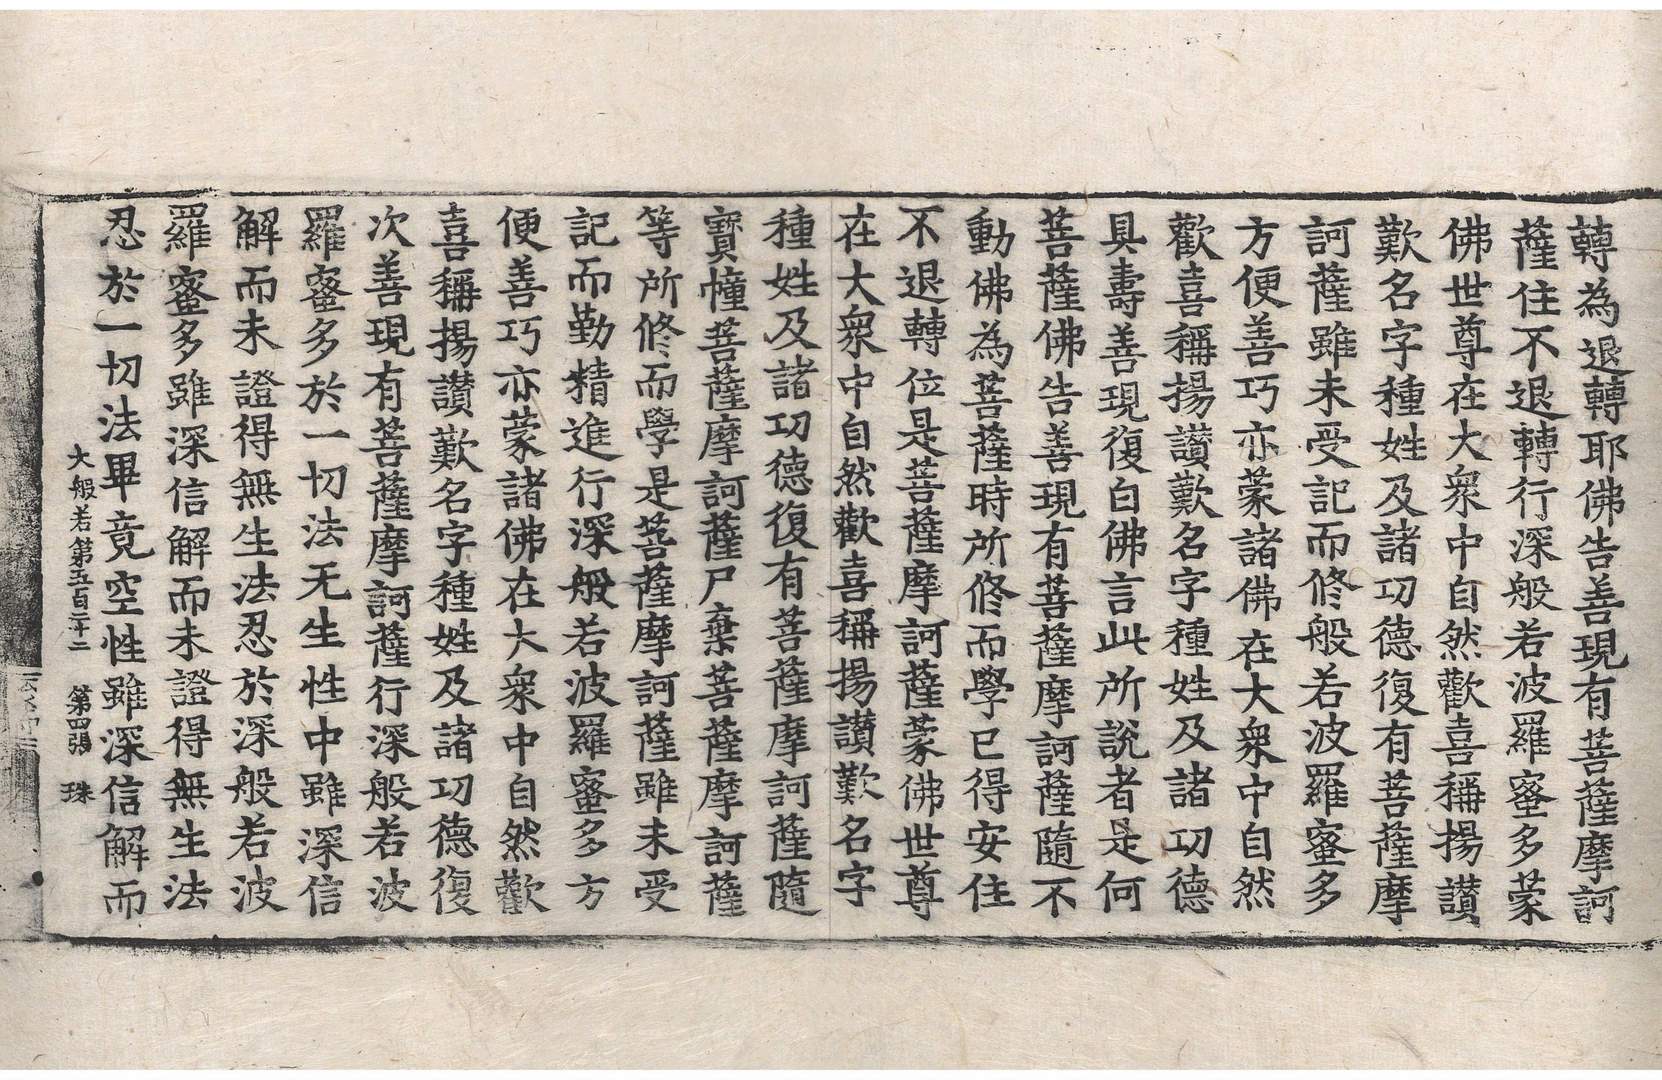 轉為退轉耶佛告善現有菩薩摩訶
薩住不退轉行深般若波羅蜜多蒙
佛世尊在大衆中自然歡喜稱揚讃
歎名字種姓及諸功德復有菩薩摩
訶薩雖未受記而修般若波羅蜜多
方便善巧亦蒙諸佛在大衆中自然
歡喜稱揚讃歎名字種姓及諸功德
具壽善現復白佛言此所說者是何
菩薩佛告善現有菩薩摩訶薩隨不
動佛為菩薩時所修而學已得安住
不退轉位是菩薩摩訶薩蒙佛世尊
在大衆中自然歡喜稱揚讃歎名字
種姓及諸功德復有菩薩摩訶薩隨
寶幢菩薩摩訶薩尸棄菩薩摩訶薩
等所修而學是菩薩摩訶薩雖未受
記而勤精進行深般若波羅蜜多方
便善巧亦蒙諸佛在大衆中自然歡
喜稱揚讃歎名字種姓及諸功德復
次善現有菩薩摩訶薩行深般若波
羅蜜多於一切法无生性中雖深信
解而未證得無生法忍於深般若波
羅蜜多雖深信解而未證得無生法
忍於一切法畢竟空性雖深信解而
大般若第五百二十二 第四張 珠